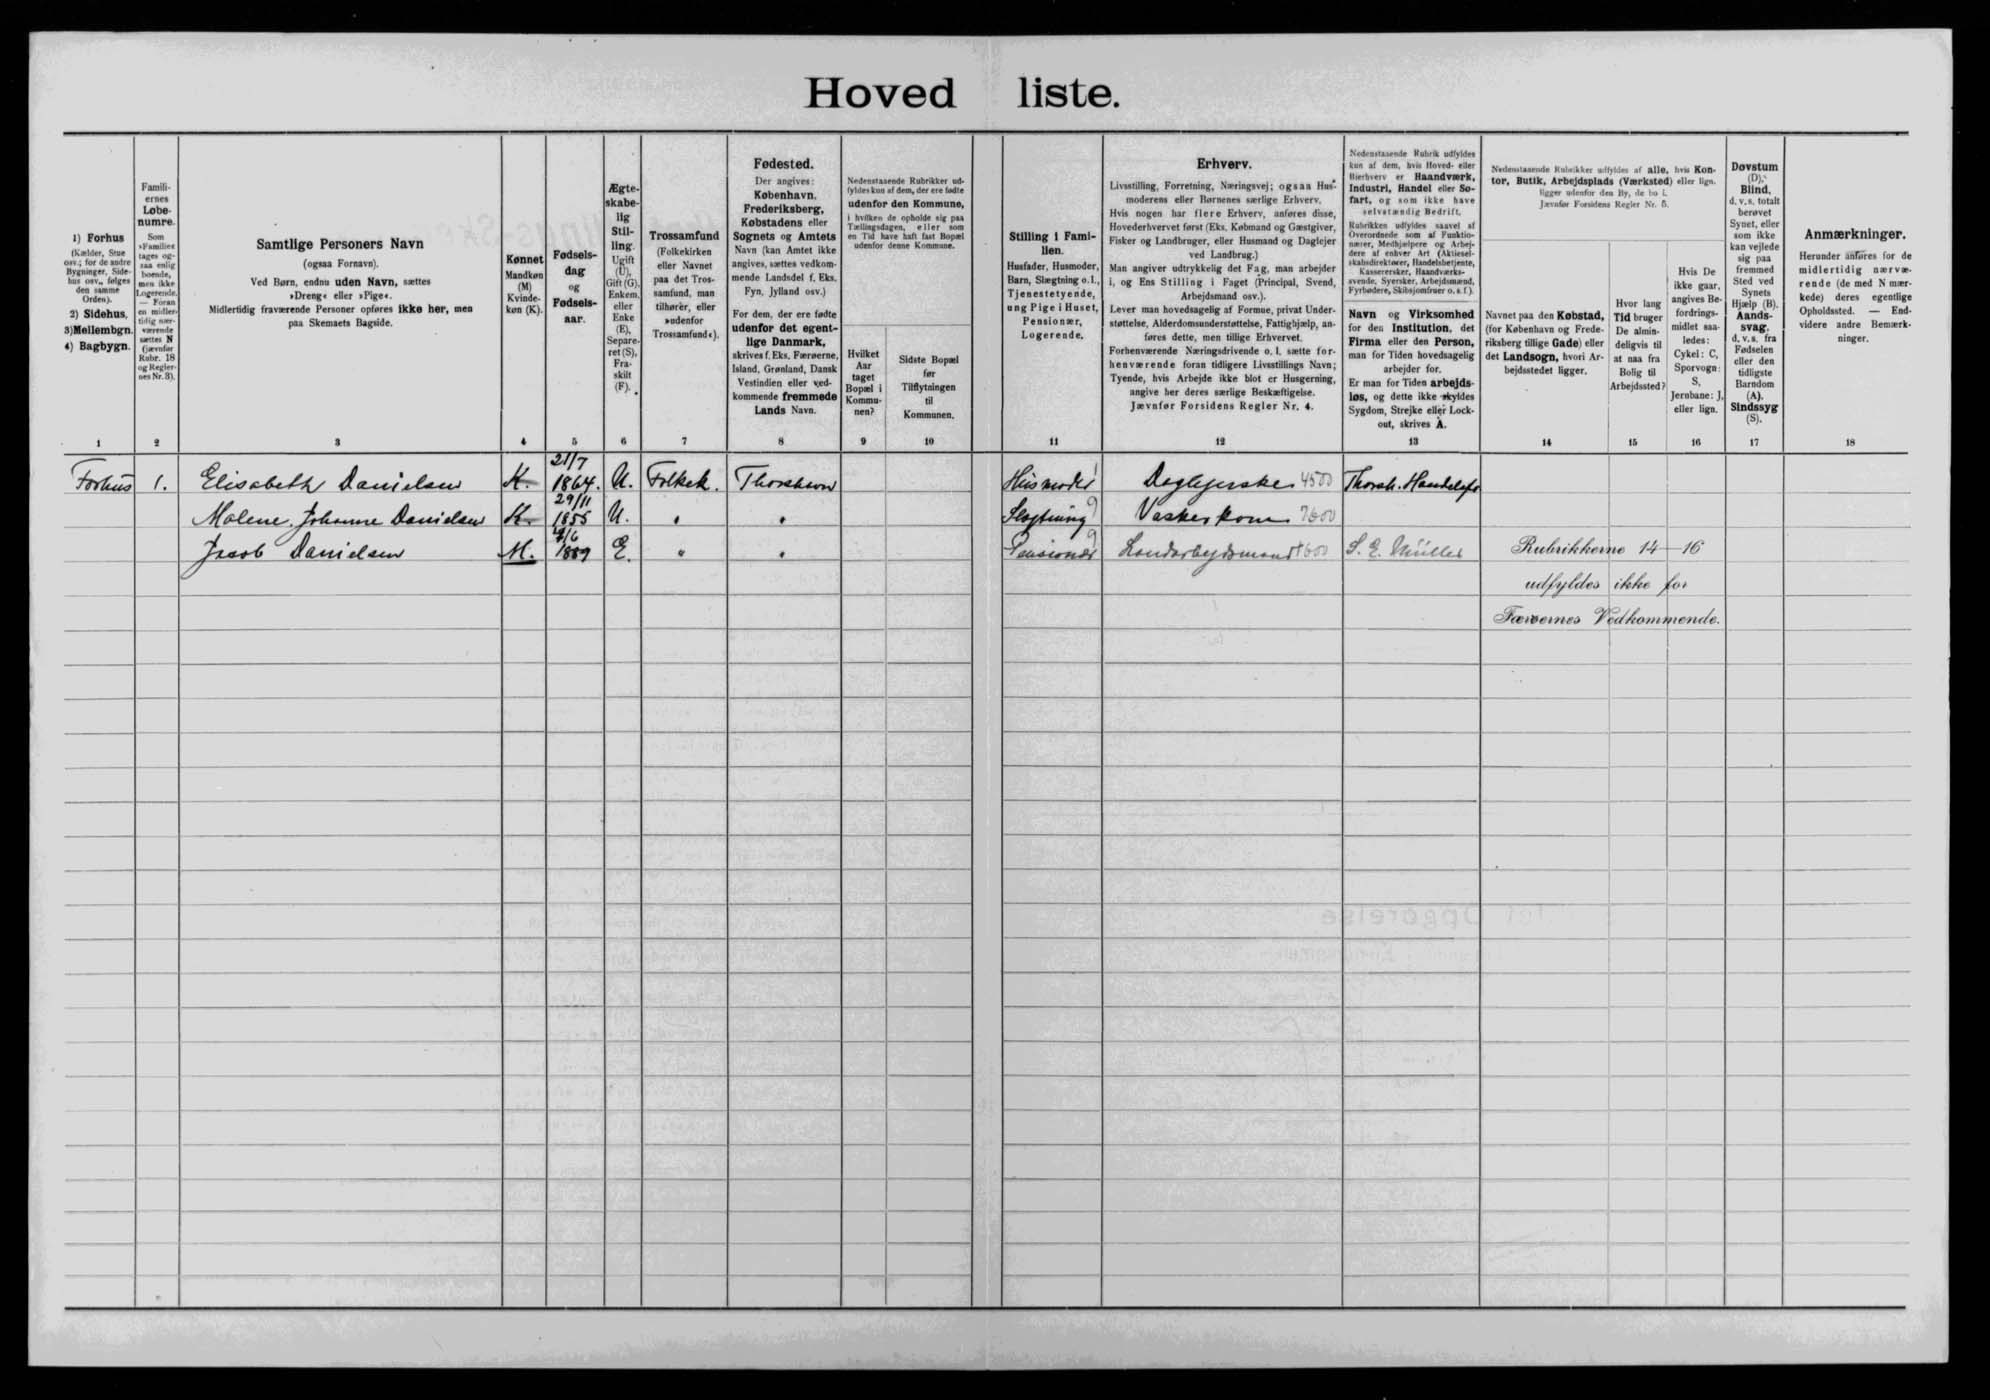 Hoved liste.
1) Forhus
(Kælder, Stue
osv.; for de andre
Bygninger, Side-
hus osv., følges
den samme
Orden).
2) Sidehus,
3) Mellembgn.
4) Bagbygn.
Famili-
ernes
Løbe-
numre.
Som
»Familie«
tages og-
saa enlig
boende,
men ikke
Logerende.
— Foran
en midler-
tidig nær-
værende
sættes N
(jævnfør
Rubr. 18
og Regler-
nes Nr. 3).
Samtlige Personers Navn
(ogsaa Fornavn).
Ved Børn, endnu uden Navn, sættes
»Dreng« eller »Pige«.
Midlertidig fraværende Personer opføres ikke her, men
paa Skemaets Bagside.
Kønnet
Mandkøn
(M)
Kvinde-
køn (K).
Fødsels-
dag
og
Fødsels-
aar.
Ægte-
skabe-
lig
Stil-
ling.
Ugift
(U),
Gift (G),
Enkem.
eller
Enke
(E),
Separe-
ret (S),
Fra-
skilt
(F).
Trossamfund
(Folkekirken
eller Navnet
paa det Tros-
samfund, man
tilhører, eller
»udenfor
Trossamfund«).
Fødested.
Der angives:
København,
Frederiksberg,
Købstadens eller
Sognets og Amtets
Navn (kan Amtet ikke
angives, sættes vedkom-
mende Landsdel f. Eks.
Fyn, Jylland osv.)
For dem, der ere fødte
udenfor det egent-
lige Danmark,
skrives f. Eks. Færøerne,
Island, Grønland, Dansk
Vestindien eller ved-
kommende fremmede
Lands Navn.
Nedenstaaende Rubrikker ud-
fyldes kun af dem, der ere fødte
udenfor den Kommune,
i hvilken de opholde sig paa
Tællingsdagen, eller som
en Tid have haft fast Bopæl
udenfor denne Kommune.
Hvilket
Aar
taget
Bopæl i
Kommu-
nen?
Sidste Bopæl
før
Tilflytningen
til
Kommunen.
Stilling i Fami-
lien.
Husfader, Husmoder,
Barn, Slægtning o.l.,
Tjenestetyende,
ung Pige i Huset,
Pensionær,
Logerende.
Erhverv.
Livsstilling, Forretning, Næringsvej; ogsaa Hus-
moderens eller Børnenes særlige Erhverv.
Hvis nogen har flere Erhverv, anføres disse,
Hovederhvervet først (Eks. Købmand og Gæstgiver,
Fisker og Landbruger, eller Husmand og Daglejer
ved Landbrug.)
Man angiver udtrykkelig det Fag, man arbejder
i, og Ens Stilling i Faget (Principal, Svend,
Arbejdsmand osv.).
Lever man hovedsagelig af Formue, privat Under-
støttelse, Alderdomsunderstøttelse, Fattighjælp, an-
føres dette, men tillige Erhvervet.
Forhenværende Næringsdrivende o. l. sætte for-
henværende foran tidligere Livsstillings Navn;
Tyende, hvis Arbejde ikke blot er Husgerning,
angive her deres særlige Beskæftigelse.
Jævnfør Forsidens Regler Nr. 4.
Nedenstaaende Rubrik udfyldes
kun af dem, hvis Hoved- eller
Bierhverv er Haandværk,
Industri, Handel eller Sø-
fart, og som ikke have
selvstændig Bedrift.
Rubrikken udfyldes saavel af
Overordnede som af Funktio-
nærer, Medhjælpere og Arbej-
dere af enhver Art (Aktiesel-
skabsdirektører, Handelsbetjente,
Kassererske, Haandværks-
svende, Syersker, Arbejdsmænd,
Fyrbødere, Skibsjomfruer o. s. f.).
Navn og Virksomhed
for den Institution, det
Firma eller den Person,
man for Tiden hovedsagelig
arbejder for.
Er man for Tiden arbejds-
løs, og dette ikke skyldes
Sygdom, Strejke eller Lock-
out, skrives A.
Nedenstaaende Rubrikker udfyldes af alle, hvis Kon-
tor, Butik, Arbejdsplads (Værksted) eller lign.
ligger udenfor den By, de bo i.
Jævnfør Forsidens Regler Nr. 5.
Navnet paa den Købstad,
(for København og Frede-
riksberg tillige Gade) eller
det Landsogn, hvori Ar-
bejdsstedet ligger.
Hvor lang
Tid bruger
De almin-
deligvis til
at naa fra
Bolig til
Arbejdssted?
Hvis De
ikke gaar,
angives Be-
fordrings-
midlet saa-
ledes:
Cykel: C,
Sporvogn:
S,
Jernbane: J,
eller lign.
Døvstum
(D),
Blind,
d. v. s. totalt
berøvet
Synet, eller
som ikke
kan vejlede
sig paa
fremmed
Sted ved
Synets
Hjælp (B),
Aands-
svag,
d. v. s. fra
Fødselen
eller den
tidligste
Barndom
(A).
Sindssyg
(S).
Anmærkninger.
Herunder anføres for de
midlertidig nærvæ-
rende (de med N mær-
kede) deres egentlige
Opholdssted. — End-
videre andre Bemærk-
ninger.
1 2 3 4 5 6 7 8 9 10 11 12 13 14 15 16 17 18
Forhus 1. Elisabeth Danielsen K. 21/7 1864. U. Folkek. Thorshavn Husmoder Daglejerske 4500 Thorsh. Handelsfo
Malene Johanne Danielsen K. 29/11 1855 U. " " Slægtning 9 Vaskerkone 7600
Jacob Danielsen M. 1889 E. " " Pensionær 9 Landarbejdsmand S. E. Müller Rubrikkerne 14—16
udfyldes ikke for
Færøernes Vedkommende.